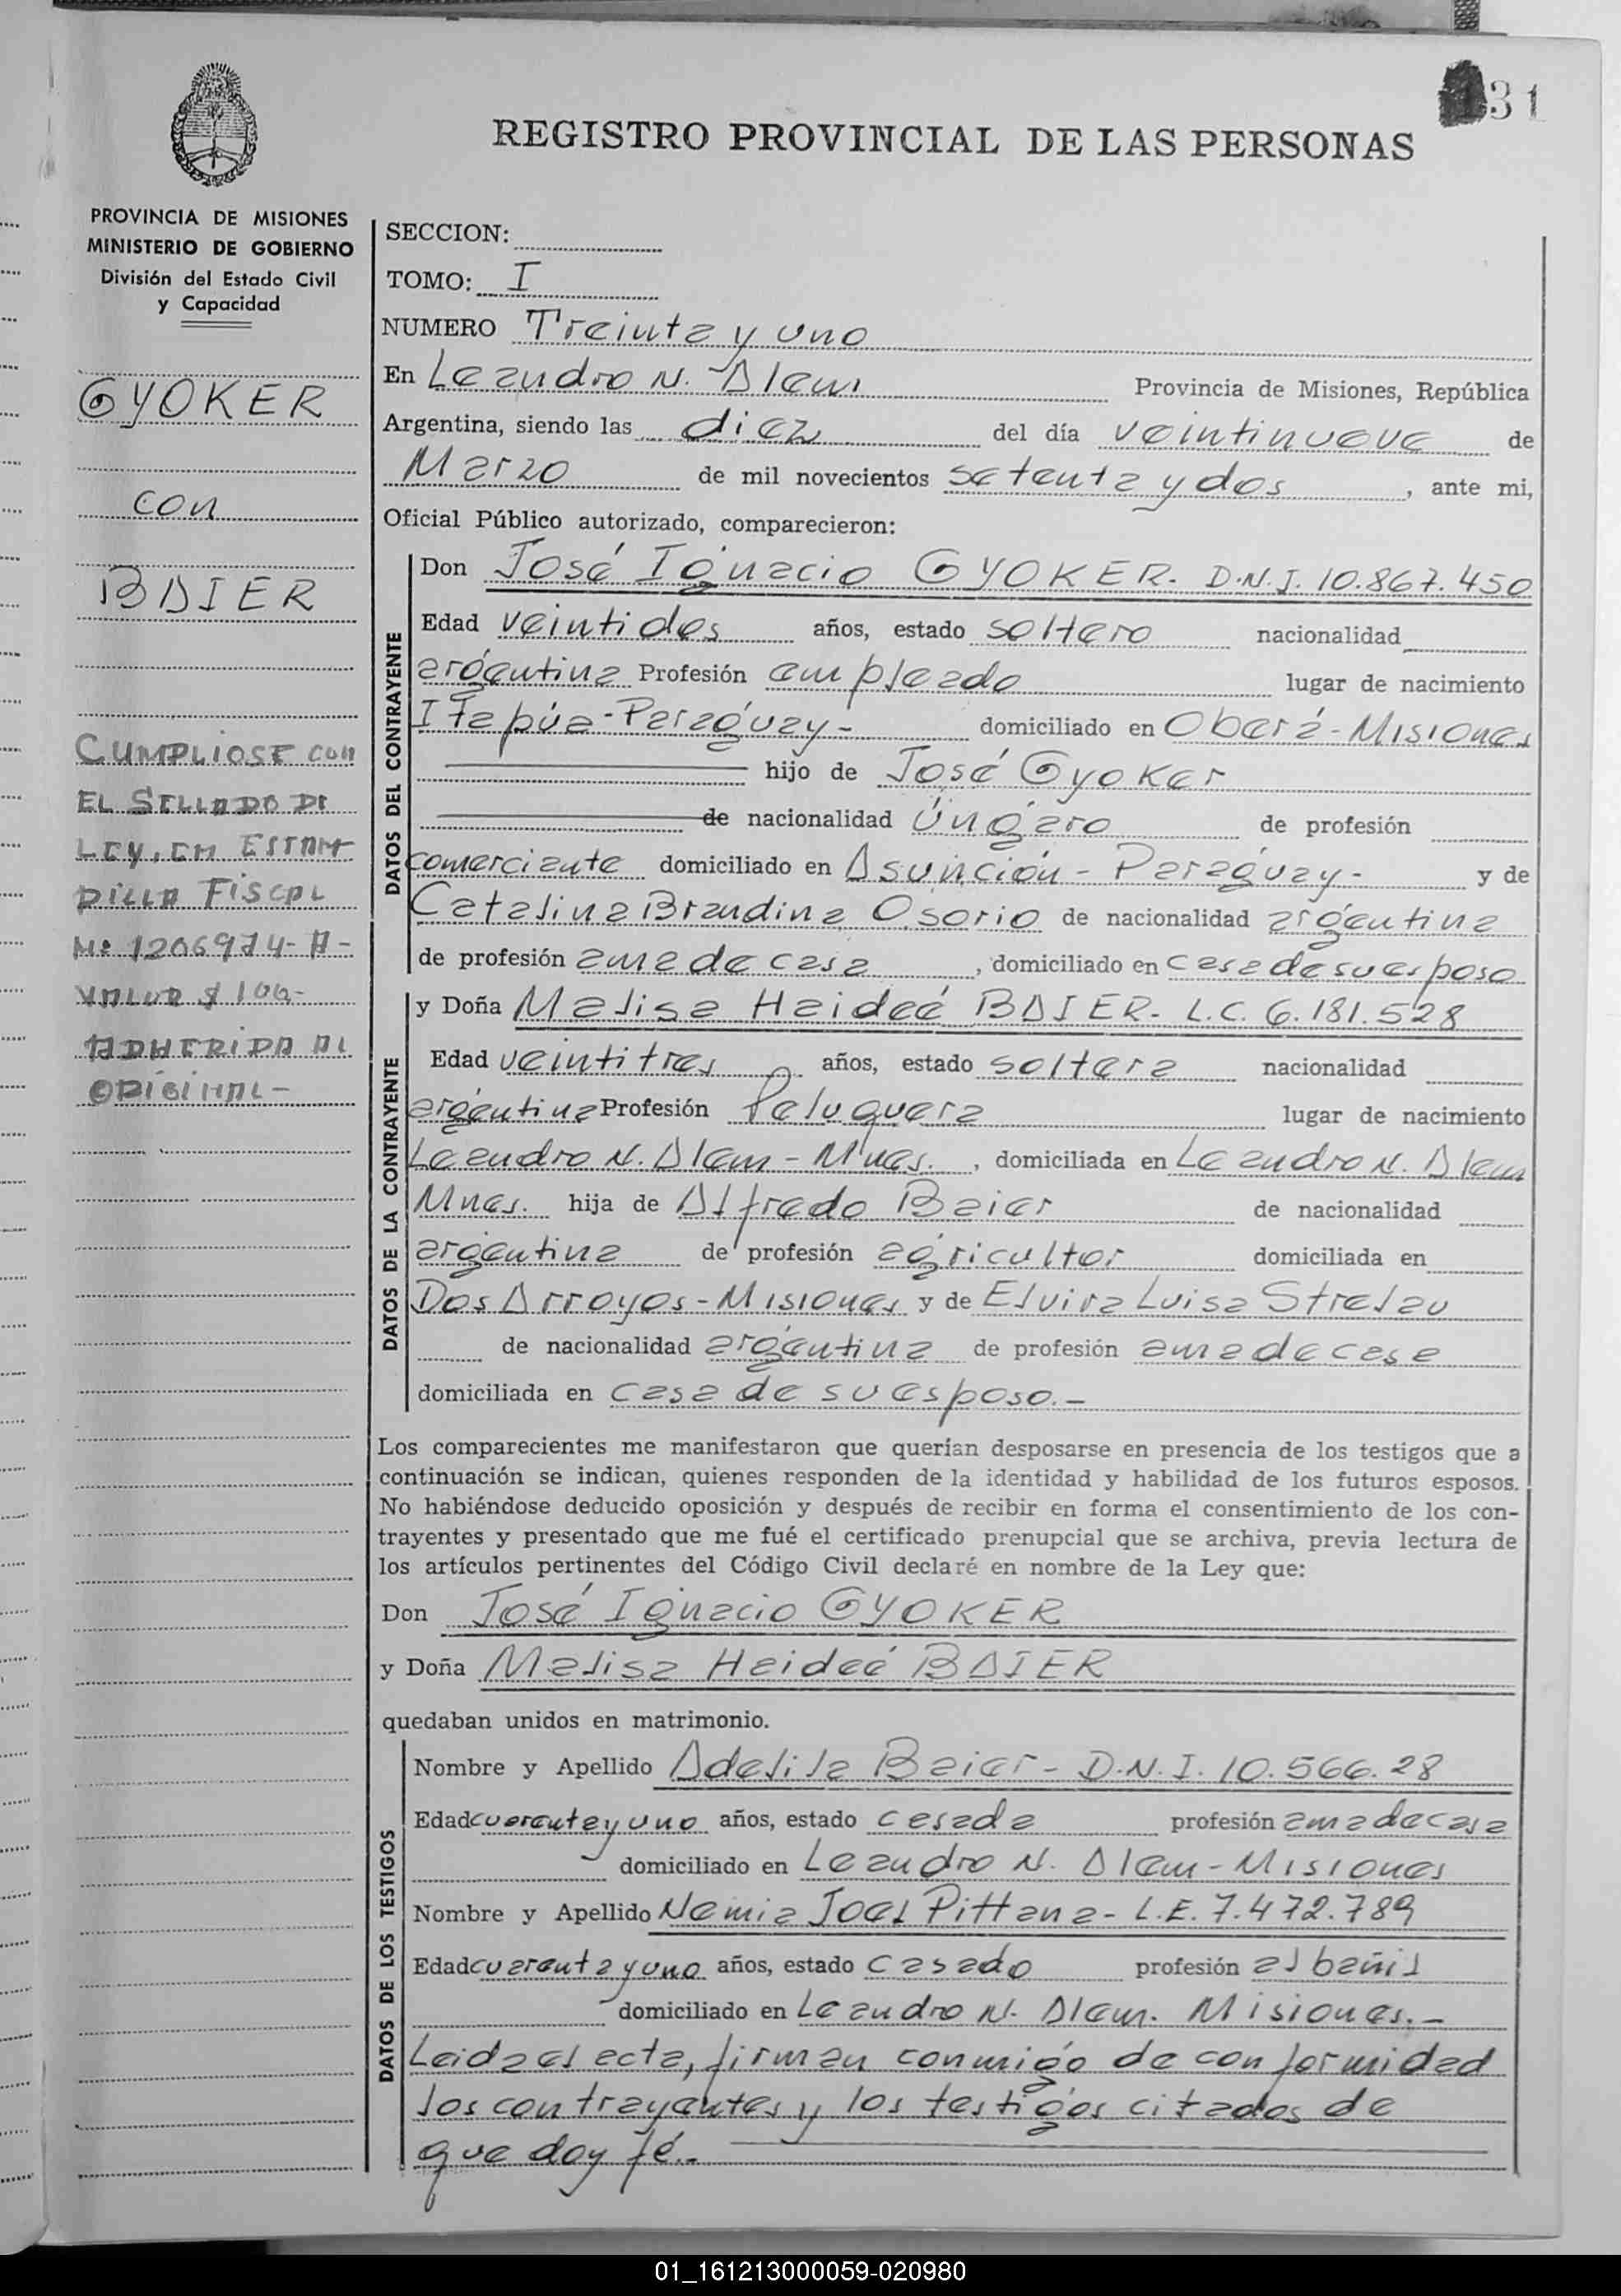 31
REGISTRO PROVINCIAL DE LAS PERSONAS
PROVINCIA DE MISIONES
MINISTERIO DE GOBIERNO
División del Estado Civil
y Capacidad
GYOKER
con
BAIER
CUMPLIOSE CON
EL SELLADO DE
LEY, EN ESTAM
PILLA FISCAL
Nº 1206974-A-
VALOR $ 100-
ADHERIDA AL
ORIGINAL-
SECCION:
TOMO: I
NUMERO Treinta y uno
En Leandro N. Alem Provincia de Misiones, República
Argentina, siendo las diez del día veintinueve de
Marzo de mil novecientos setenta y dos, ante mi,
Oficial Público autorizado, comparecieron:
DATOS DEL CONTRAYENTE
Don José Ignacio GYOKER- D.N.I. 10.867.450
Edad veintidos años, estado soltero nacionalidad
argentina Profesión empleado lugar de nacimiento
Itapúa-Paraguay- domiciliado en Oberá-Misiones
hijo de José Gyoker
de nacionalidad Úngaro de profesión
comerciante domiciliado en Asunción-Paraguay- y de
Catalina Brandina Osorio de nacionalidad argentina
de profesión ama de casa, domiciliado en casa de su esposo
DATOS DE LA CONTRAYENTE
y Doña Malisa Haideé BAIER- L.C. 6.181.528
Edad veintitres años, estado soltera nacionalidad
argentina Profesión Peluquera lugar de nacimiento
Leandro N. Alem-Mnes., domiciliada en Leandro N. Alem
Mnes. hija de Alfredo Baier de nacionalidad
argentina de profesión agricultor domiciliada en
Dos Arroyos-Misiones y de Elvira Luisa Strelau
de nacionalidad argentina de profesión ama de casa
domiciliada en casa de su esposo.-
Los comparecientes me manifestaron que querían desposarse en presencia de los testigos que a
continuación se indican, quienes responden de la identidad y habilidad de los futuros esposos.
No habiéndose deducido oposición y después de recibir en forma el consentimiento de los con-
trayentes y presentado que me fué el certificado prenupcial que se archiva, previa lectura de
los artículos pertinentes del Código Civil declaré en nombre de la Ley que:
Don José Ignacio GYOKER
y Doña Malisa Haideé BAIER
quedaban unidos en matrimonio.
DATOS DE LOS TESTIGOS
Nombre y Apellido Adelila Baier- D.N.I. 10.566.28
Edad cuarenta y uno años, estado casada profesión ama de casa
domiciliado en Leandro N. Alem-Misiones
Nombre y Apellido Nemia Joel Pittana- L.E. 7.472.789
Edad cuarenta y uno años, estado casado profesión albañil
domiciliado en Leandro N. Alem. Misiones.-
Leida el acta, firman conmigo de conformidad
los contrayentes y los testigos citados de
que doy fé.-
01_161213000059-020980